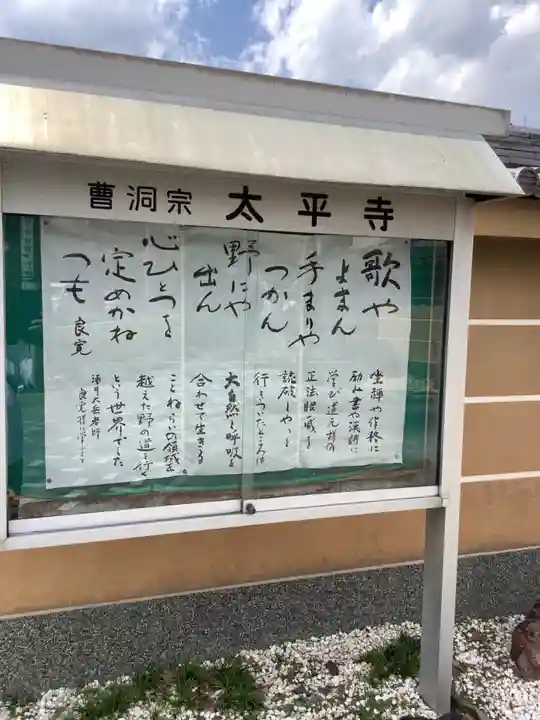 曹洞宗 太平寺
歌や
よまん
手まりや
つかん
野にや
出ん
心ひとつを
定めかね
つも 良寛
坐禅や作務に
励み書や漢詩に
学び道元禅の
正法眼蔵を
読破しやっと
行きついたところは
大自然と呼吸を
合わせて生きる
こと ねらいの領域を
越えた野の道を行く
という世界でした
酒井大岳老師
良寛様に学ぶより